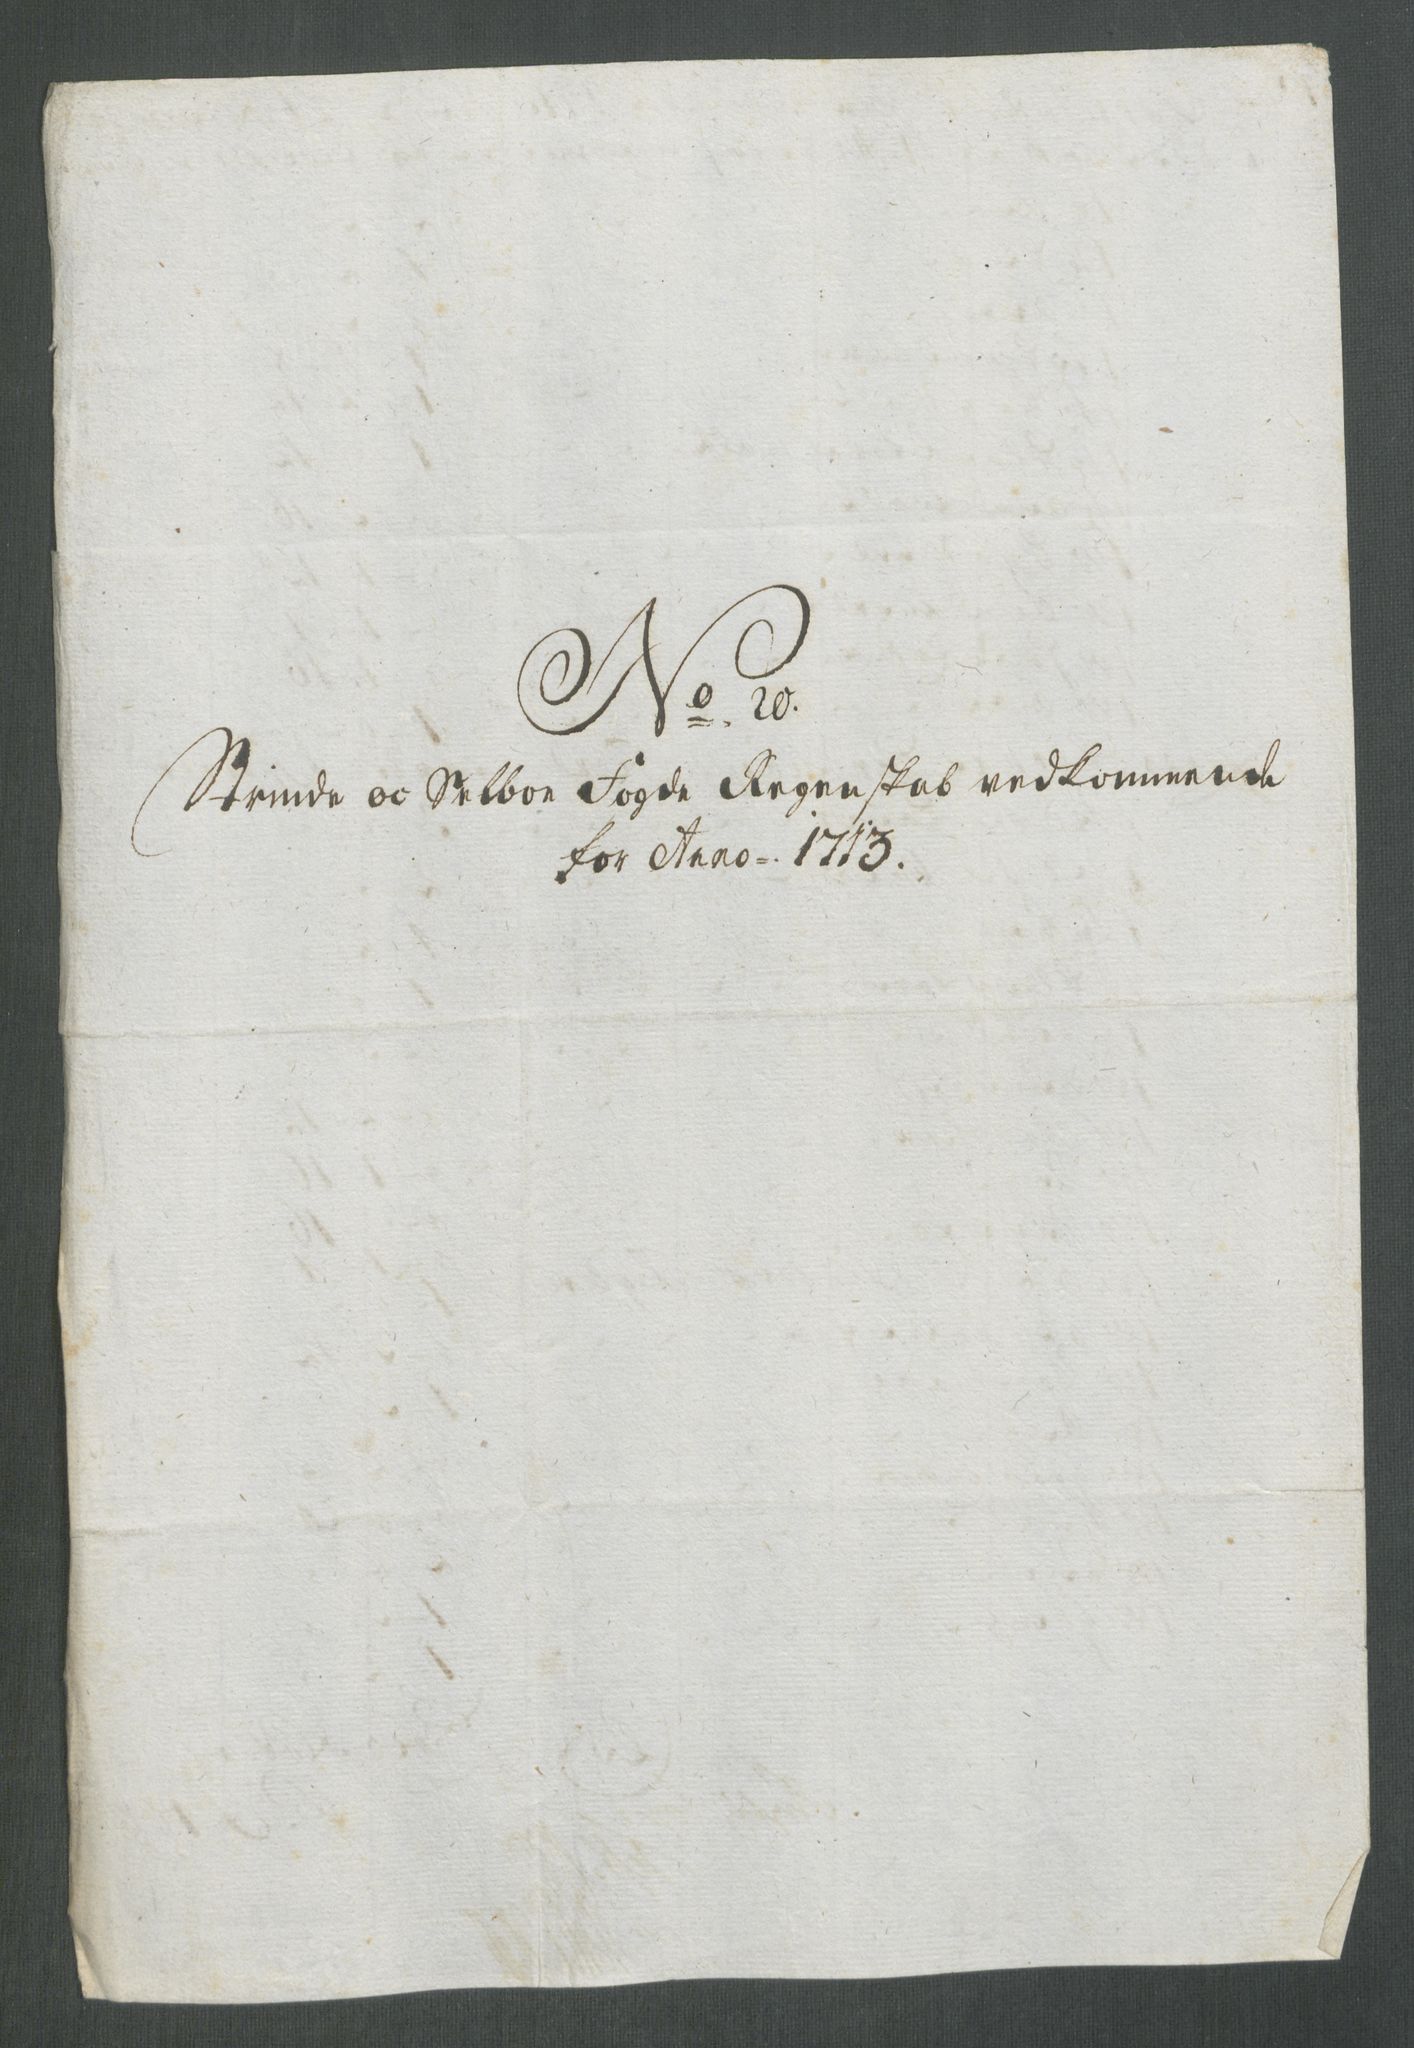 No. 20.
Strinde oc Selboe Fogde Regenskab vedkommende
for Anno. 1713.